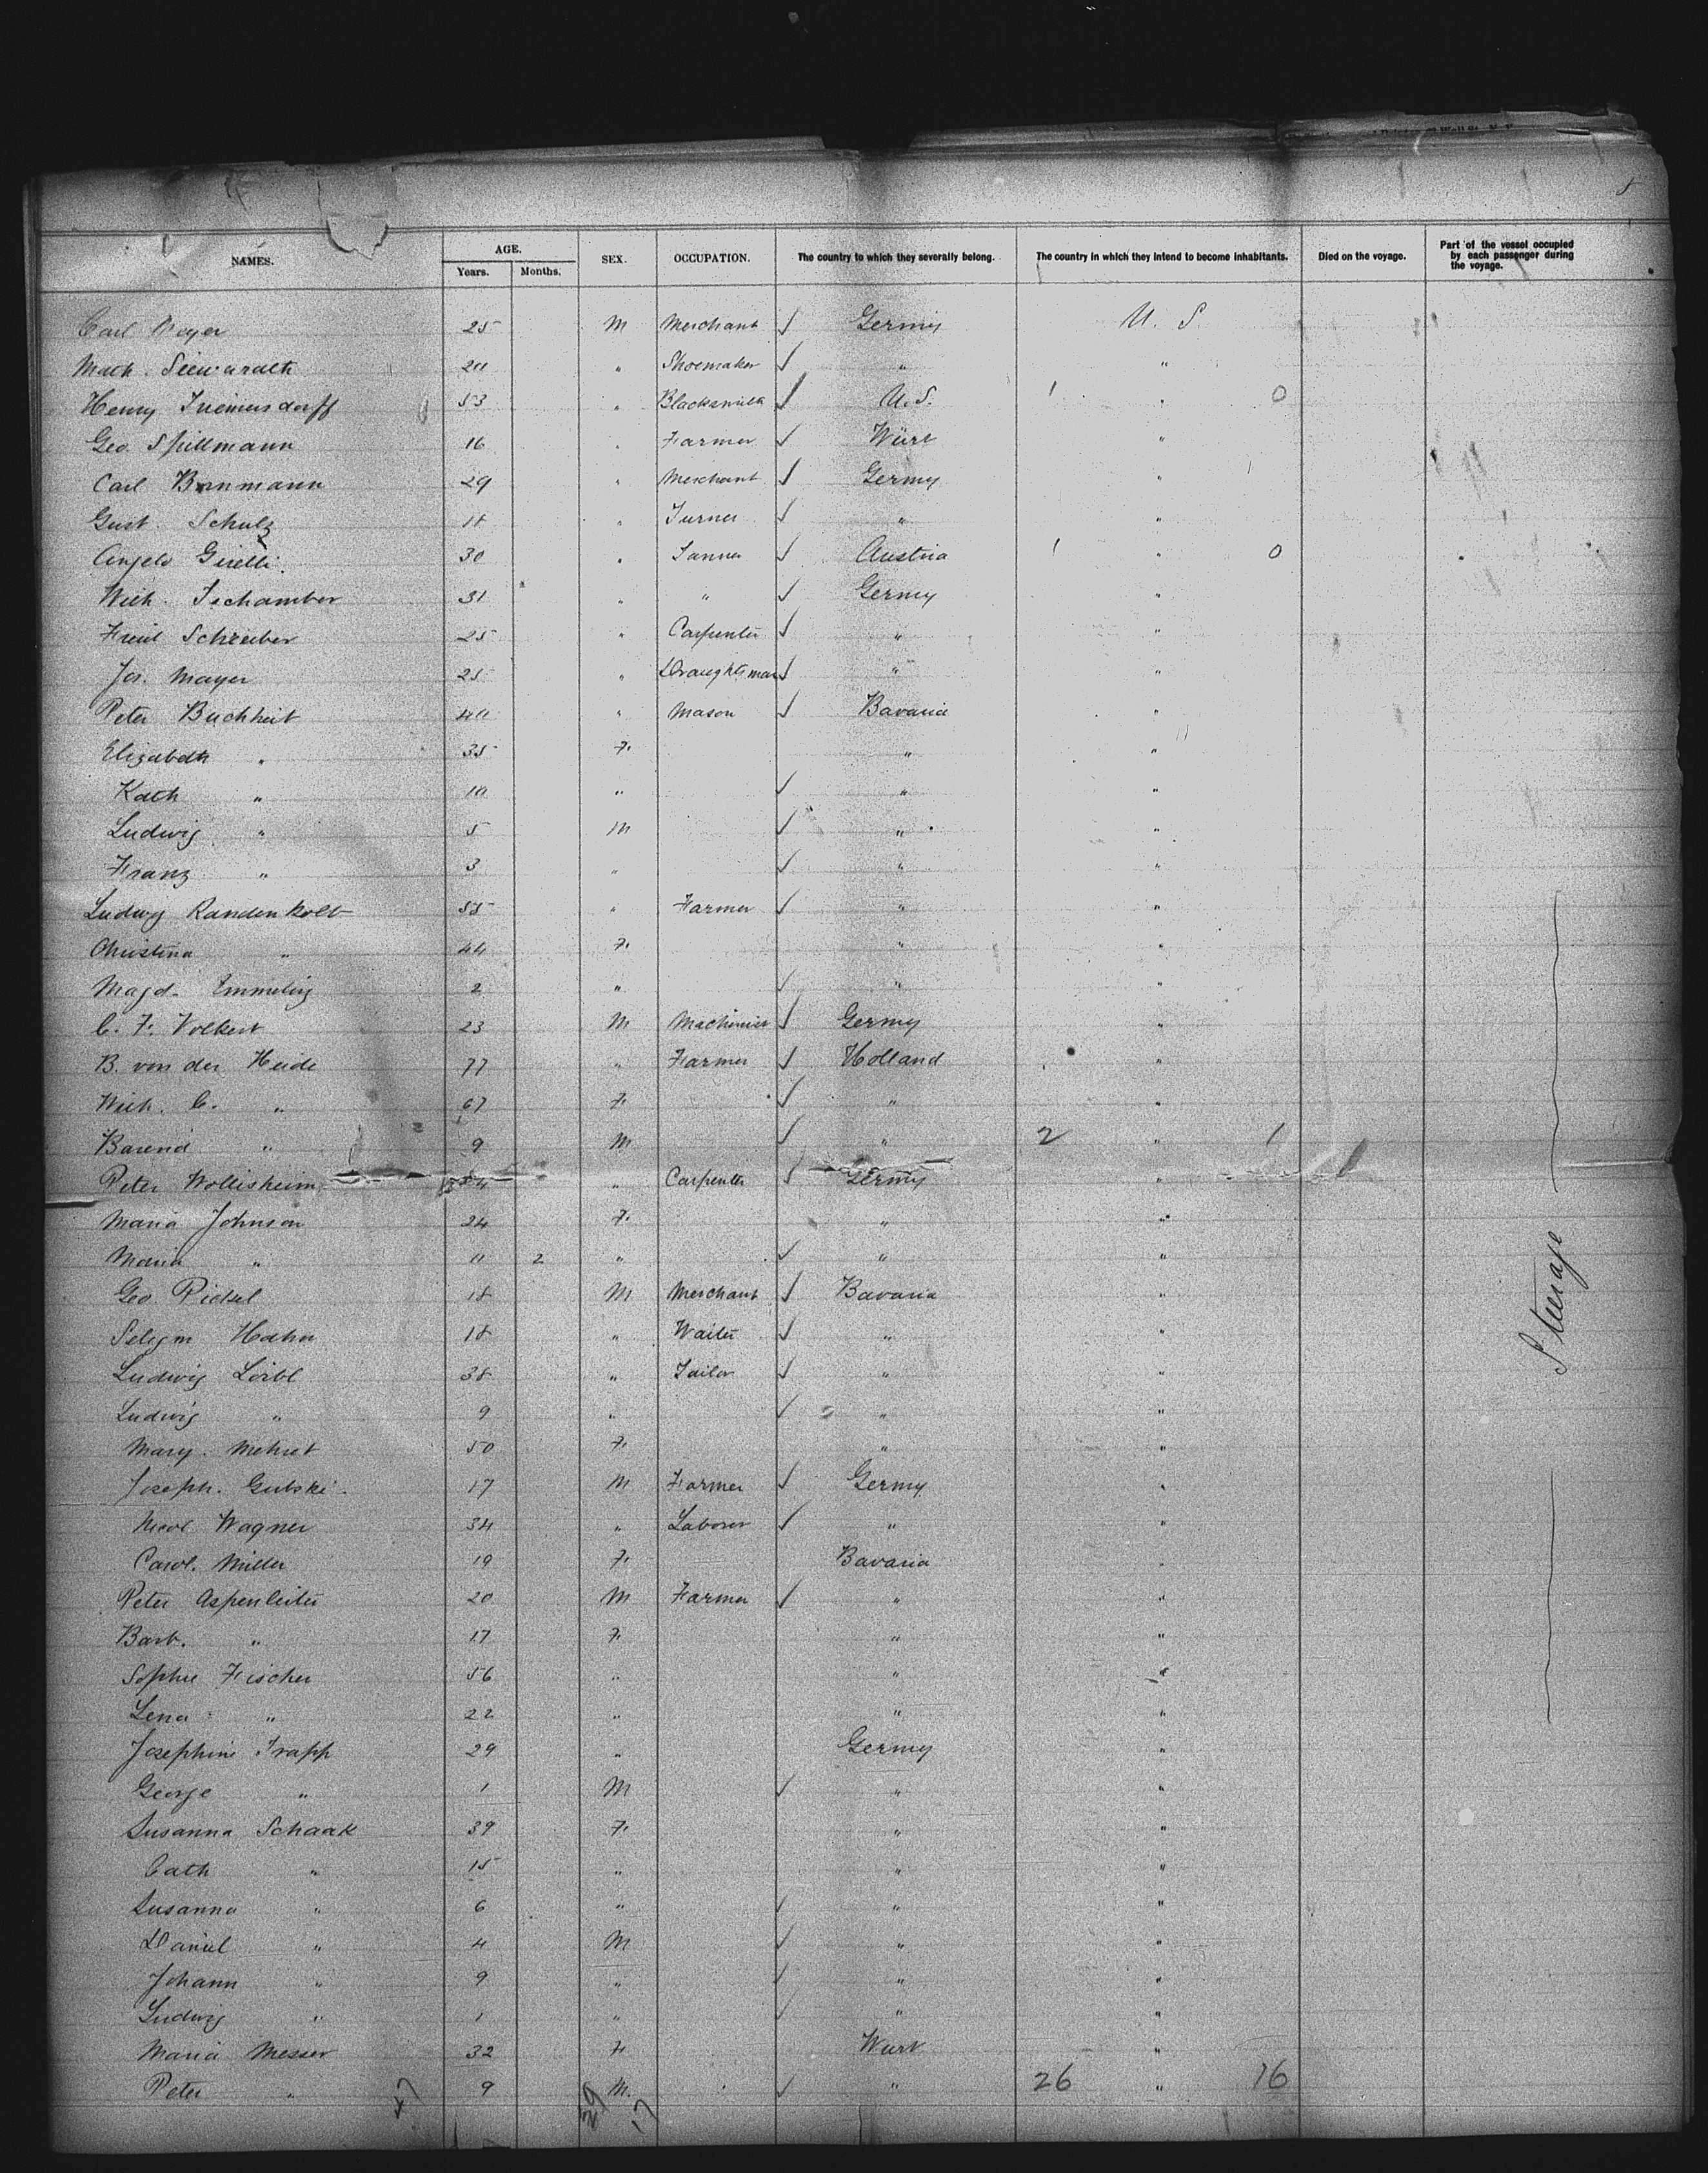 NAMES. AGE. SEX. OCCUPATION. The country to which they severally belong. The country in which they intend to become inhabitants. Died on the voyage. Part of the vessel occupied by each passenger during the voyage.
Years. Months.
Carl Meyer 25 M Merchant Germy U. S
Math. " Shoemaker " "
Henry 53 " Blacksmith U.S. 1 " 0
Geo. Spillmann 16 " Farmer Würt "
Carl 29 " Merchant Germy "
Gust. Schulz 18 " Turner " "
Angelo Girelli 30 " Tanner Austria 1 " 0
Tschamber 31 " " Germy "
Schreiber 25 " Carpenter " "
Jos. Mayer 25 " Draughtsman " "
Peter Buchheit 40 " Mason Bavaria "
Elizabeth " 35 F. " "
Kath " 10 " " "
Ludwig " 5 M " "
Franz " 3 " " "
Ludwig 55 " Farmer " "
Christina " 44 F. " "
Magd. 2 " " "
C. F. Volkert 23 M Machinist Germy "
B. von der Heide 77 " Farmer Holland "
C. " 67 F. " "
Barend " 9 M " 2 " 1
Peter " Carpenter Germy "
Maria Johnson 24 F. " "
Maria " " 2 " " "
Geo. 18 M Merchant Bavaria "
Hahn 18 " Waiter " "
Ludwig 38 " Tailor " "
Ludwig " 9 " " "
Mary. 50 F. " "
Joseph. Gutski 17 M Farmer Germy "
Wagner 34 " Laborer " "
Carol. Miller 19 F. Bavaria "
Peter Aspenleiter 20 M Farmer " "
Barb. " 17 F. " "
Sophie Fischer 56 " " "
Lena " 22 " " "
Josephine Trapp 29 " Germy "
George " 1 M " "
Susanna Schaak 39 F. " "
Cath " 15 " " "
Susanna " 6 " " "
Daniel " 4 M " "
Johann " 9 " " "
Ludwig " 1 " " "
Maria Messer 32 F Wurt "
Peter " 9 M. " 26 " 16
47 29 17
Steerage